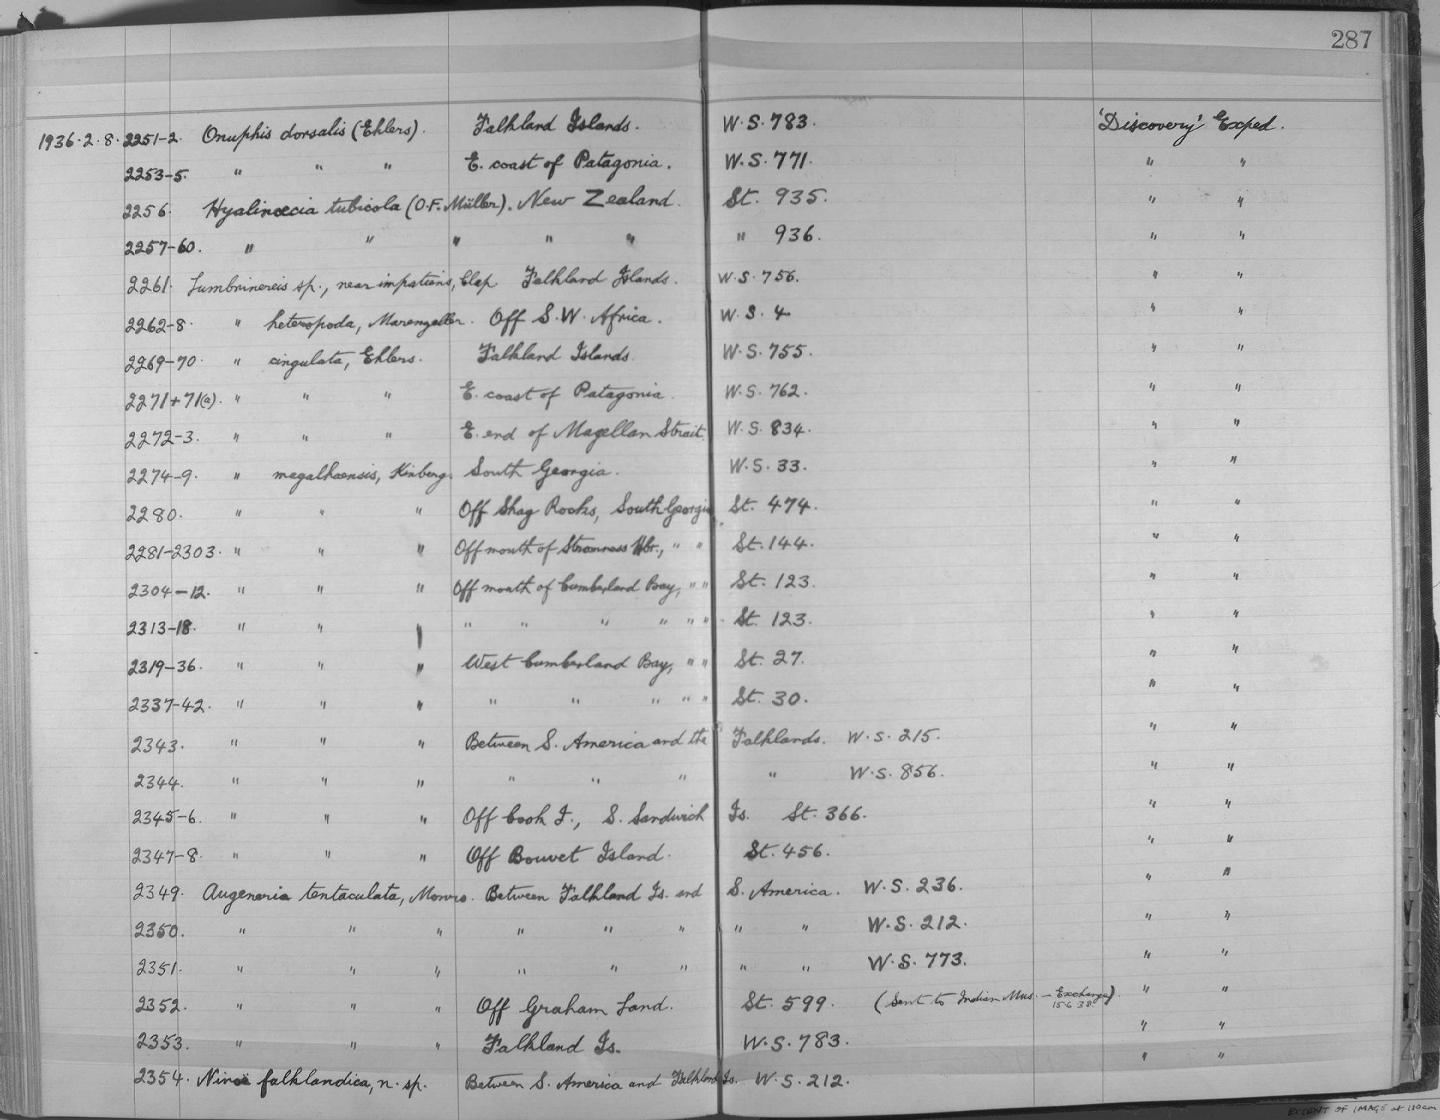 287
1936.2.8. 2251-2. Onuphis dorsalis (Ehlers). Falkland Islands. W.S. 783. 'Discovery' Exped.
2253-5. " " " E. coast of Patagonia. W.S. 771. " "
2256. Hyalinœcia tubicola (O.F. Müller). New Zealand. St. 935. " "
2257-60. " " " " " " 936. " "
2261. Lumbrinereis sp., near impatiens, Clap. Falkland Islands. W.S. 756. " "
2262-8. " heteropoda, Marenzeller. Off S.W. Africa. W.S. 4 " "
2269-70. " cingulata, Ehlers. Falkland Islands. W.S. 755. " "
2271+71(a). " " " E. coast of Patagonia. W.S. 762. " "
2272-3. " " " E. end of Magellan Strait. W.S. 834. " "
2274-9. " magalhaensis, Kinberg. South Georgia. W.S. 33. " "
2280. " " " Off Shag Rocks, South Georgia. St. 474. " "
2281-2303. " " " Off mouth of Stromness Hbr., " " St. 144. " "
2304-12. " " " Off mouth of Cumberland Bay, " " St. 123. " "
2313-18. " " " " " " " " " St. 123. " "
2319-36. " " " West Cumberland Bay, " " St. 27. " "
2337-42. " " " " " " " " St. 30. " "
2343. " " " Between S. America and the Falklands. W.S. 215. " "
2344. " " " " " " " W.S. 856. " "
2345-6. " " " Off Cook I., S. Sandwich Is. St. 366. " "
2347-8. " " " Off Bouvet Island. St. 456. " "
2349. Augeneria tentaculata, Monro. Between Falkland Is. and S. America. W.S. 236. " "
2350. " " " " " " " " W.S. 212. " "
2351. " " " " " " " " W.S. 773. " "
2352. " " " Off Graham Land. St. 599. (Sent to Indian Mus. - Exchange) " "
15.6.38.
2353. " " " Falkland Is. W.S. 783. " "
2354. Ninoë falklandica, n. sp. Between S. America and Falkland Is. W.S. 212. " "
EXTENT OF IMAGE at 110cm